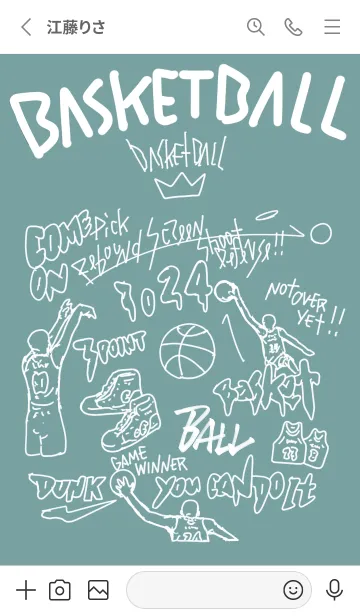 江藤りさ
BASKETBALL
BASKETBALL
COME Pick
ON Rebound Screen Shoot
Defense!!
2024
NOT OVER
YET!!
3 POINT
BASKET
BALL
GAME
WINNER
DUNK
YOU CAN DO It
23
8
24